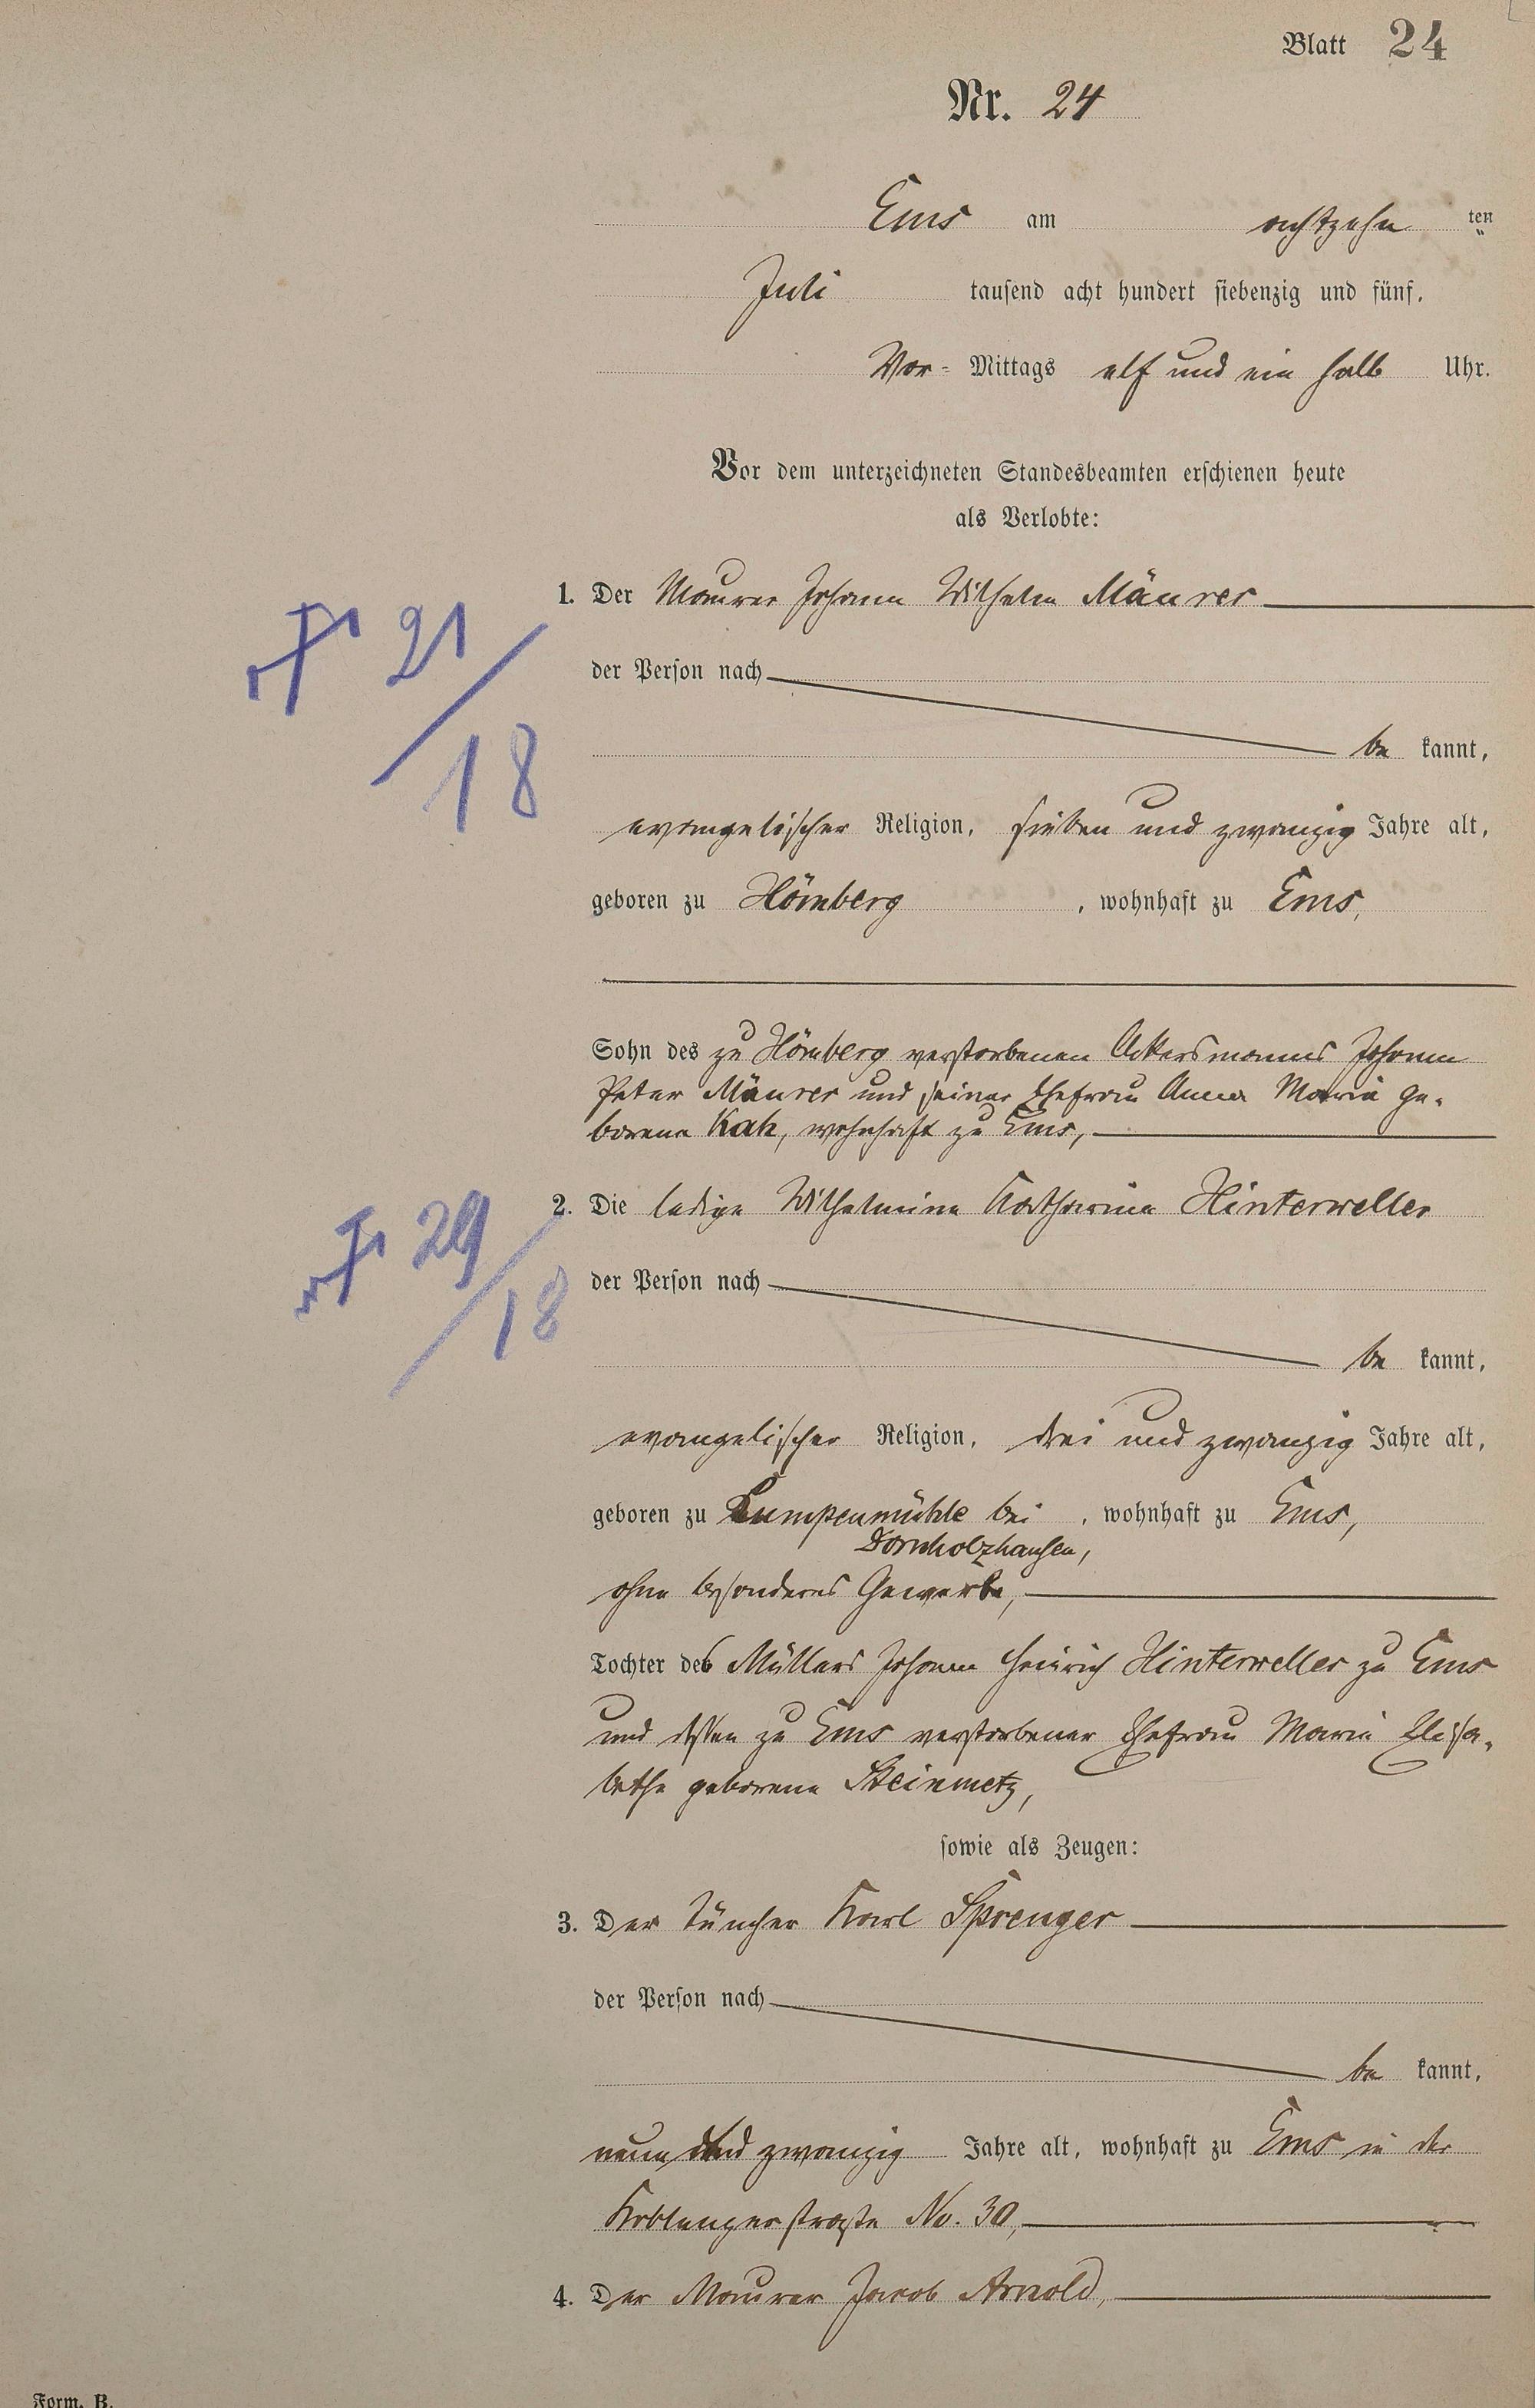 Blatt 24
Nr. 24
Ems am achtzehn ten
Juli tausend acht hundert siebenzig und fünf.
Vor- Mittags elf und ein halb Uhr.
Vor dem unterzeichneten Standesbeamten erschienen heute
als Verlobte:
1. Der Maurer Johann Wilhelm Mäurer
der Person nach
be kannt,
evangelischer Religion, sieben und zwanzig Jahre alt,
geboren zu Hömberg, wohnhaft zu Ems,
Sohn des zu Hömberg verstorbenen Ackersmannes Johann
Peter Mäurer und seiner Ehefrau Anna Maria ge-
borene wohnhaft zu Ems,
2. Die ledige Wilhelmine Katharina Hinterweller
der Person nach
be kannt,
evangelischer Religion, drei und zwanzig Jahre alt,
geboren zu Lumpenmühle bei, wohnhaft zu Ems,
Dornholzhausen,
ohne besonderes Gewerbe,
Tochter des Müllers Johann Heinrich Hinterweller zu Ems
und dessen zu Ems verstorbener Ehefrau Maria Elisa-
betha geborene Steinmetz,
sowie als Zeugen:
3. Der Tüncher Karl Sprenger
der Person nach
be kannt,
neun und zwanzig Jahre alt, wohnhaft zu Ems in der
Koblenzerstraße No. 30,
4. Der Maurer Jacob Arnold,
21/18
29/18
Form. B.